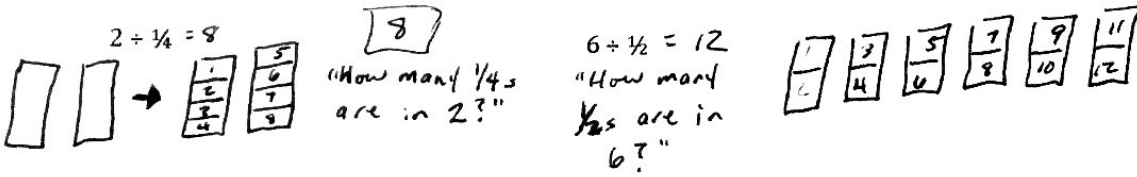 2 ÷ ¼ = 8
1
2
3
4
5
6
7
8
8
"How many ¼s
are in 2?"
6 ÷ ½ = 12
"How many
½s are in
6?"
1
3
4
5
6
7
8
9
10
11
12